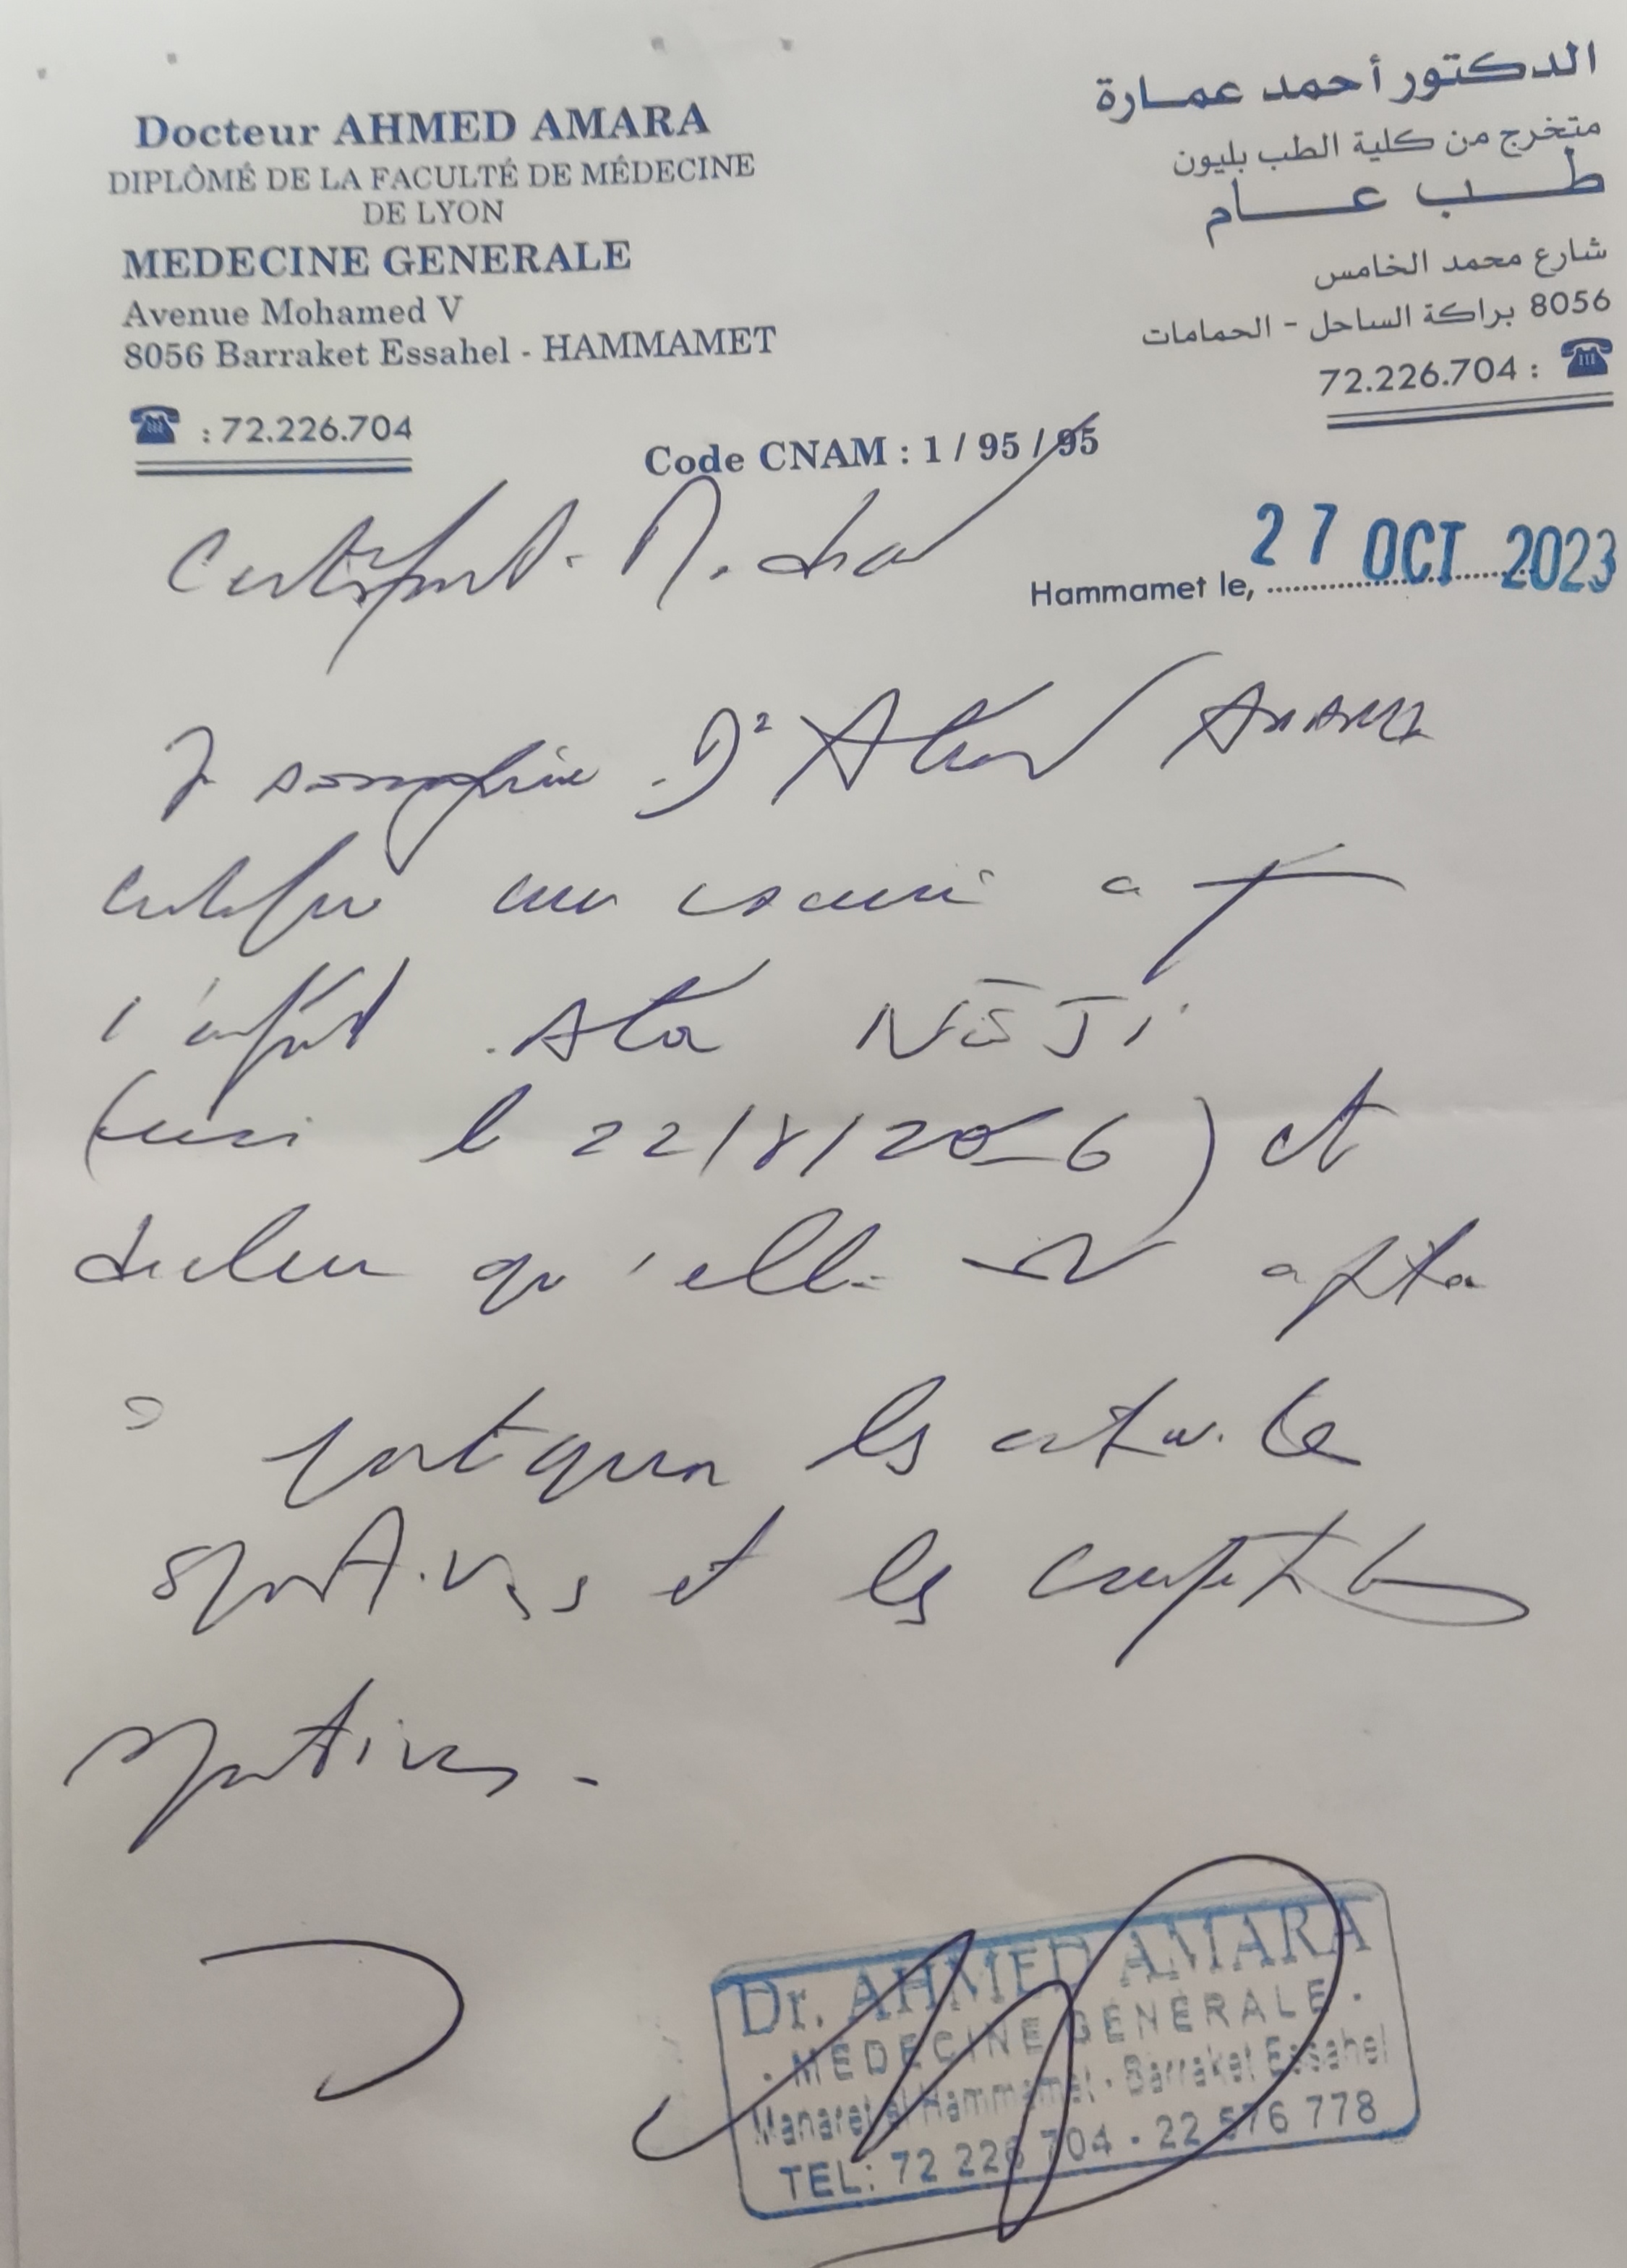 Docteur AHMED AMARA
DIPLÒMÉ DE LA FACULTÉ DE MÉDECINE
DE LYON
MEDECINE GENERALE
Avenue Mohamed V
8056 Barraket Essahel - HAMMAMET
☎ : 72.226.704
الدكتور أحمد عمارة
متخرج من كلية الطب بليون
طب عام
شارع محمد الخامس
8056 براكة الساحل - الحمامات
72.226.704 : ☎
Code CNAM : 1 / 95 / 95
Certificat Médical
Hammamet le, 27 OCT 2023
Je soussigné Dr Ahmed AMARA
certifie avoir examiné
l'enfant NEJI
(née le 22/8/20 6) et
déclare qu'elle est apte
à pratiquer les activités
sportives et les compétitions
sportives -
Dr. AHMED AMARA
- MEDECINE GENERALE -
Manaret el Hammamet - Barraket Essahel
TEL: 72 226 704 - 22 576 778